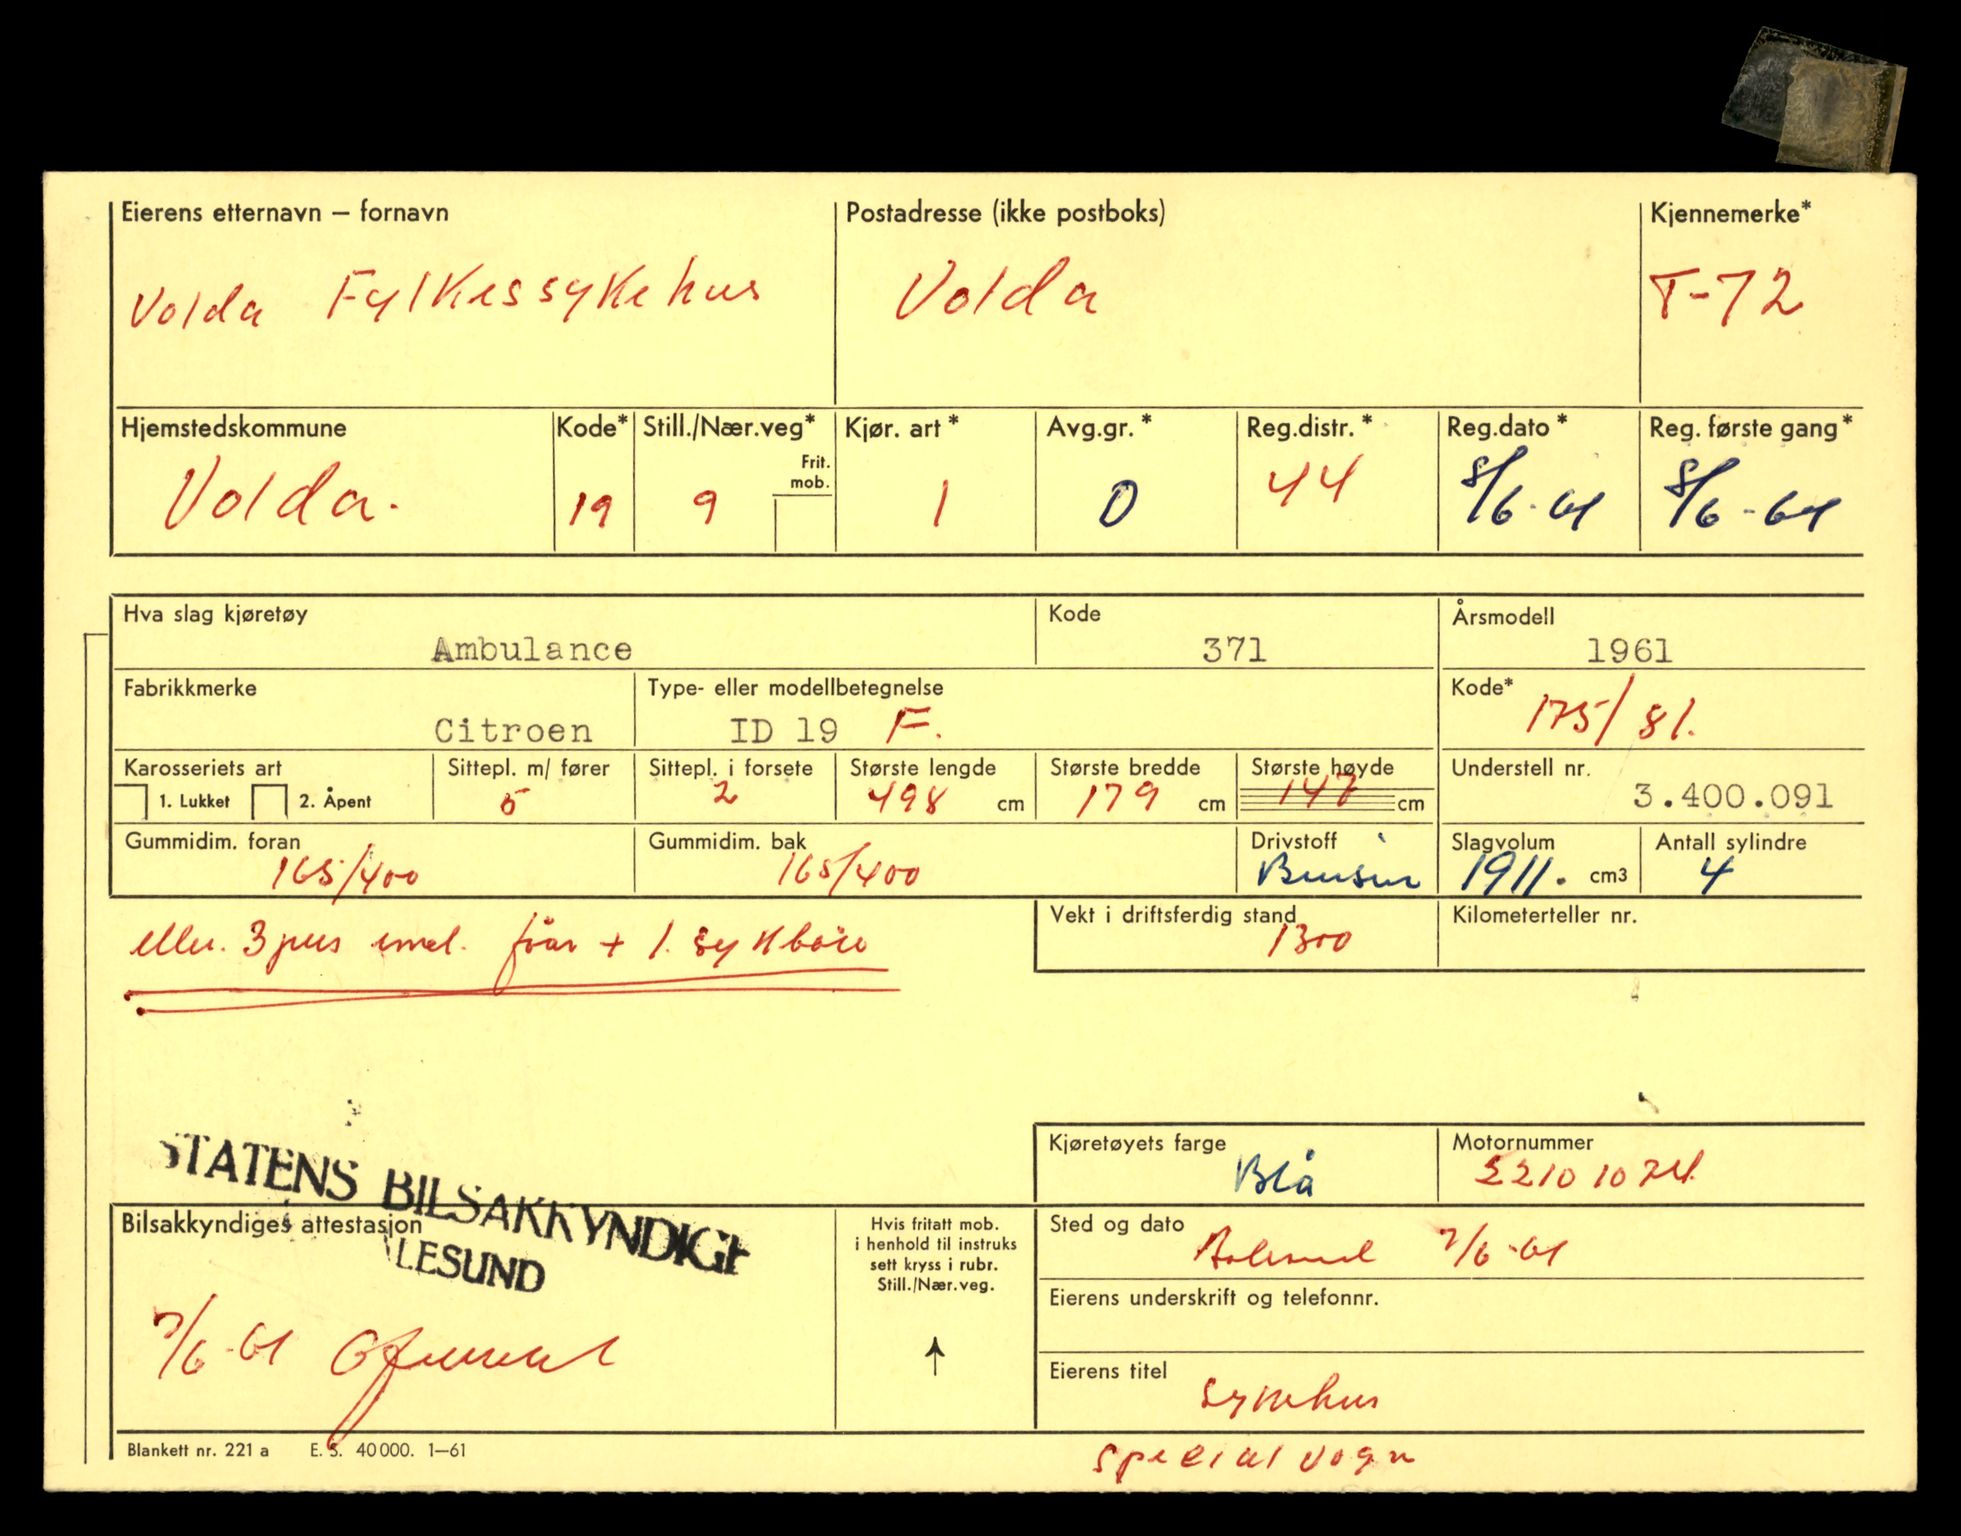 Eierens etternavn – fornavn Postadresse (ikke postboks) Kjennemerke*
Volda Fylkessykehus Volda T-72
Hjemstedskommune Kode* Still./Nær.veg* Kjør. art* Avg.gr.* Reg.distr.* Reg.dato* Reg. første gang*
Frit. mob.
Volda. 19 9 1 0 44 8/6-61 8/6-61
Hva slag kjøretøy Kode Årsmodell
Ambulance 371 1961
Fabrikkmerke Type- eller modellbetegnelse Kode*
Citroen ID 19 F. 175/81.
Karosseriets art Sittepl. m/ fører Sittepl. i forsete Største lengde Største bredde Største høyde Understell nr.
1. Lukket 2. Åpent 5 2 498 cm 179 cm 147 cm 3.400.091
Gummidim. foran Gummidim. bak Drivstoff Slagvolum Antall sylindre
165/400 165/400 Bensin 1911. cm3 4
eller. 3 pers incl. fører + 1. sykbåre
Vekt i driftsferdig stand Kilometerteller nr.
1300
STATENS BILSAKKYNDIGE
ÅLESUND
Kjøretøyets farge Motornummer
Blå
Bilsakkyndiges attestasjon Hvis fritatt mob.
i henhold til instruks
sett kryss i rubr.
Still./Nær.veg.
Sted og dato
Aalesund 7/6-61
7/6-61
Eierens underskrift og telefonnr.
Eierens titel
Sykehus
Blankett nr. 221 a E. S. 40 000. 1–61
Specialvogn